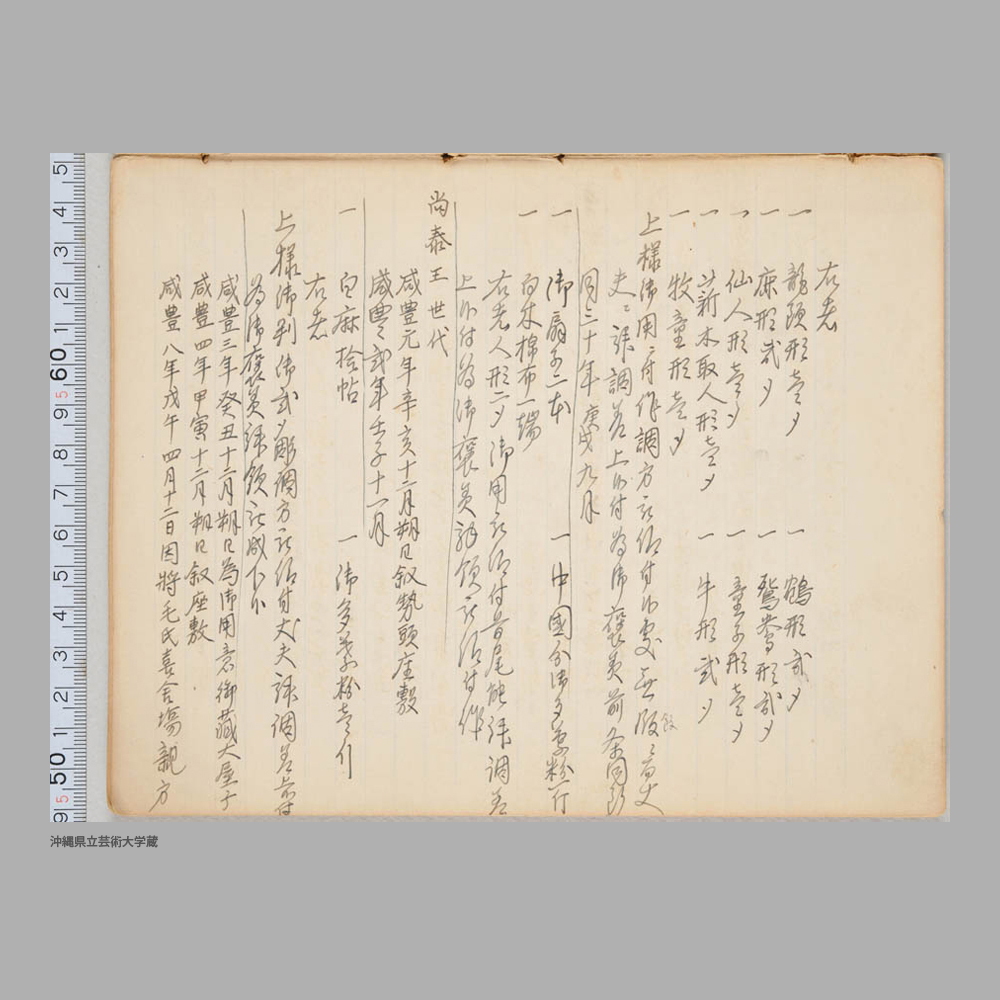 右者
一 龍頭形壱ツ 一 鶴形弐ツ
一 麻形弐ツ 一 鴛鴦形弐ツ
一 仙人形壱ツ 一 童子形壱ツ
一 薪木取人形壱ツ 一 牛形弐ツ
一 牧童形壱ツ
上様御用ニ付作調方被仰付候処無
夫々詠調差上候付為御褒美前条同断
同三十年庚戌九月
一 御扇子二本 一 中國分御多葉粉一斤
一 白木棉布一端
右老人形二ツ御用被仰付首尾能詠調差
上候付為御褒美拝領被仰付候
尚泰王世代
咸豊元年辛亥十二月朔日叙勢頭座敷
咸豊弐年壬子十一月
一 白麻拾帖 一 御多葉粉壱斤
右者
上様御判御弐ツ彫調方被仰付丈夫詠調差上候付
為御褒美拝領被成下候
咸豊三年癸丑十二月朔日為御用意御蔵大屋子
咸豊四年甲寅十二月朔日叙座敷
咸豊八年戊午四月十二日因將毛氏喜舎場親方
沖縄県立芸術大学蔵